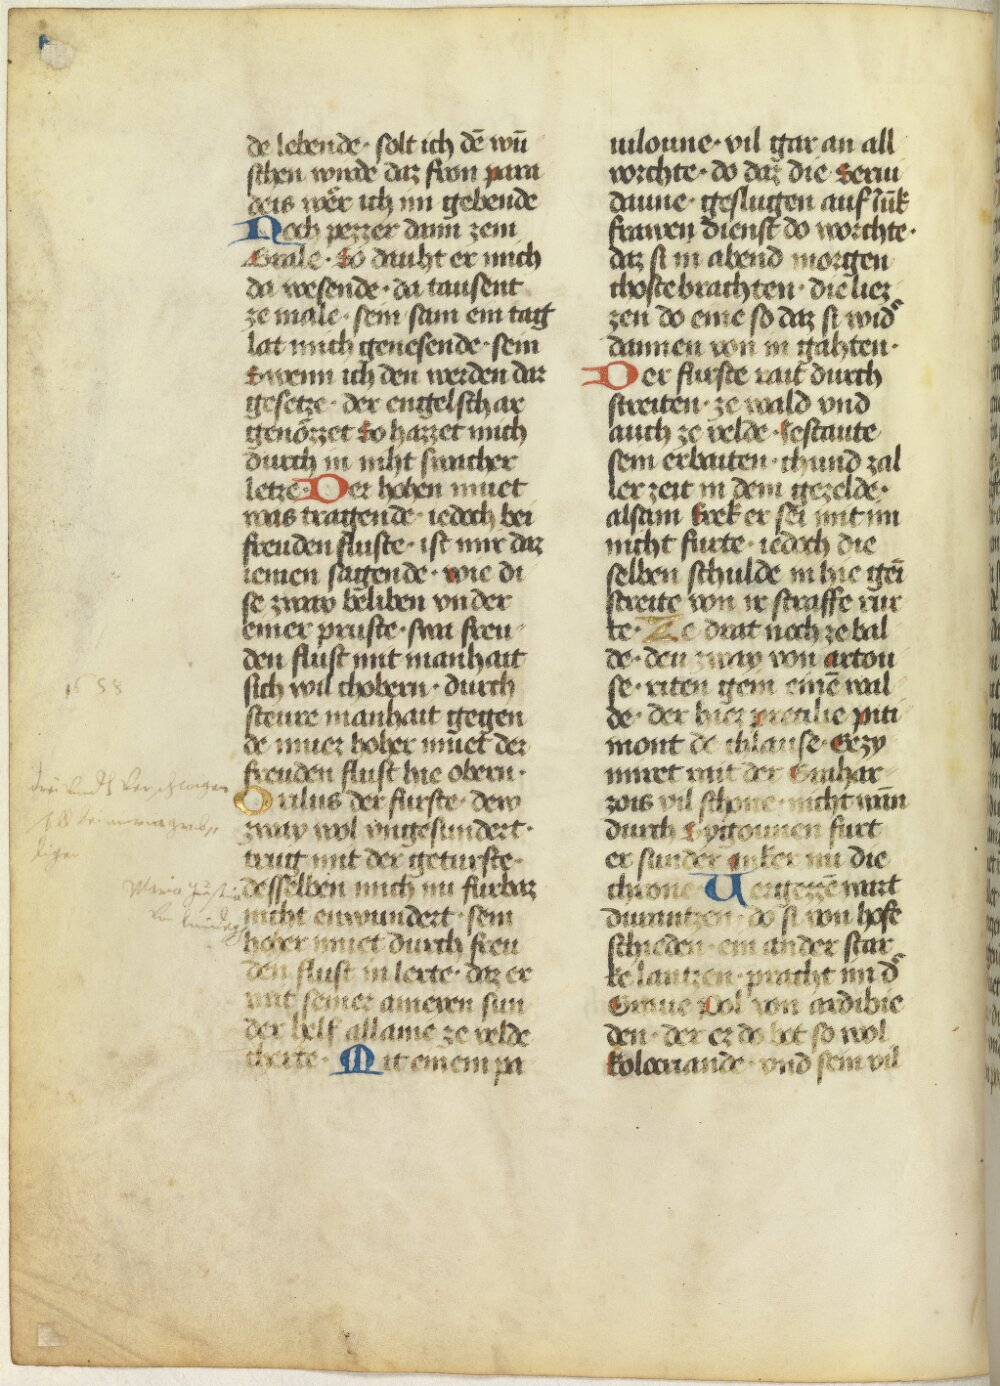 de lebende · solt ich dē wū
schen wurde daz fron para
deis wer ich im gebende
Noch pezzer dann zem
Grale · So dauht er mich
da wesende · da tausent
ze male · sein sam ein tag
lat mich genesende · sein
Swenn ich den werden dar
gesetze · der engelschar
genözzet So hazzet mich
durch in niht swacher
letze · Der hohen muet
was tragende · iedoch bei
freuden fluste · ist mir daz
iemen sagende · wie di
se zway beliben vnder
einer pruste · swa freu
den flust mit manhait
sich wil chobern · durch
steure manhait gegen
de muez hoher muet der
freuden flust hie obern ·
Orilus der furste · dew
zway wol vngesundert ·
trug mit der geturste ·
desselben mich nu furbaz
nicht enwundert · sein
hoher muet durch freu
den flust in lerte · daz er
mit seiner ameyen sun
der helf allaine ze velde
cherte · Mit einem pa
uilonne · vil gar an all
vorchte · do daz die Seriu
daune · geslugen auf
frawen dienst do worchte ·
daz si in abend morgen
choste brachten · die liez
zen do eine so daz si wid
dannen von in gahten ·
Der furste rait durch
streiten · ze wald vnd
auch ze velde · Testaute
sein erbaiten · ich und zal
ler zeit in dem gezelde ·
alsam Erek er sei mit im
nicht furte · iedoch die
selben schulde in hie gein
streite von ir straffe rur
te · Ze drat noch ze bal
de · den zway von artou
se · riten gein einē wal
de · der hiez precilie piti
mont de chlause · Gezy
miret mit der Grahar
zois vil schone · nicht wān
durch Sygounen furt
er sunder anker nu die
chrone · Vergezzē wart
durantzen · do si von hofe
schieden · ein ander star
ke lantzen · pracht im d
Graue pol von ardibie
den · der ez do bot so wol
vnd sein vil
1658